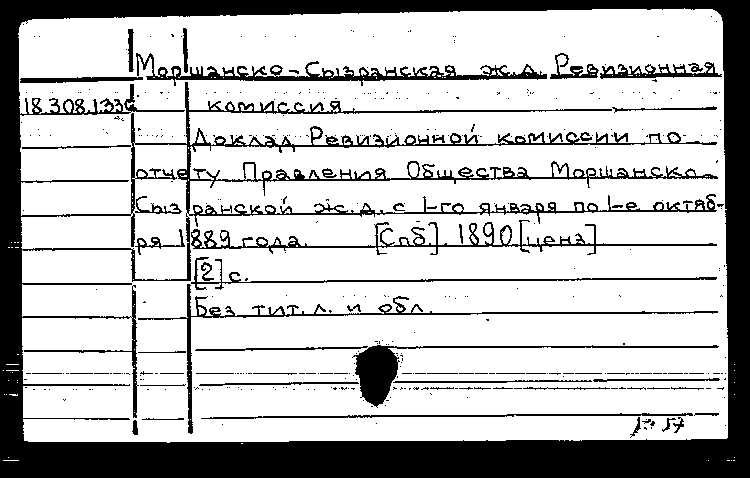 Моршанско-Сызранская ж.д. Ревизионная
18.308.1.336 комиссия.
Доклад Ревизионной комиссии по
отчету Правления Общества Моршанско-
Сызранской ж.д. с 1-го января по 1-е октяб-
ря 1889 года. [Спб]. 1890 [ценз]
[2] с.
Без тит.л. и обл.